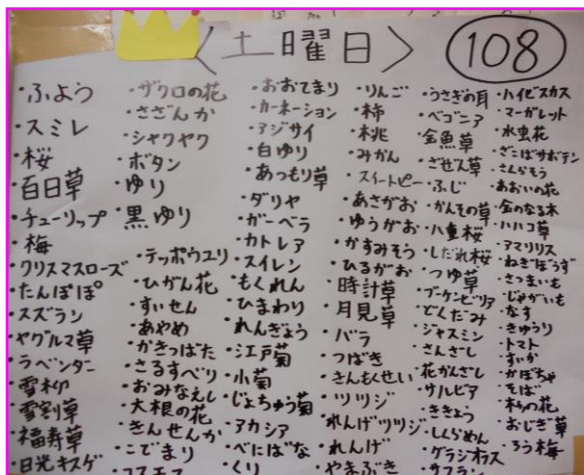 〈土曜日〉 108
・ふよう
・スミレ
・桜
・百日草
・チューリップ
・梅
・クリスマスローズ
・たんぽぽ
・スズラン
・ヤグルマ草
・ラベンダー
・雪柳
・雪割草
・福寿草
・日光キスゲ
・ザクロの花
・さざんか
・シャクヤク
・ボタン
・ゆり
・黒ゆり
・テッポウユリ
・ひがん花
・すいせん
・あやめ
・かきつばた
・さるすべり
・おみなえし
・大根の花
・きんせんか
・こでまり
・コスモス
・おおてまり
・カーネーション
・アジサイ
・白ゆり
・あつもり草
・ダリヤ
・ガーベラ
・カトレア
・スイレン
・もくれん
・ひまわり
・れんぎょう
・江戸菊
・小菊
・じょちゅう菊
・アカシア
・べにばな
・くり
・りんご
・柿
・桃
・みかん
・スイートピー
・あさがお
・ゆうがお
・かすみそう
・ひるがお
・時計草
・月見草
・バラ
・つばき
・きんもくせい
・ツツジ
・れんげツツジ
・れんげ
・やまぶき
・うさぎの耳
・ベゴニア
・金魚草
・ざぜん草
・ふじ
・かんその草
・八重桜
・しだれ桜
・つゆ草
・ブーゲンビリア
・どくだみ
・ジャスミン
・さんざし
・花かんざし
・サルビア
・ききょう
・しくらめん
・グラジオラス
・サフラン
・ハイビスカス
・マーガレット
・水虫花
・ぎこばサボテン
・さくらそう
・あおいの花
・金のなる木
・ハハコ草
・アマリリス
・ねぎぼうず
・さつまいも
・じゃがいも
・なす
・きゅうり
・トマト
・すいか
・かぼちゃ
・そば
・おじぎ草
・ろう梅